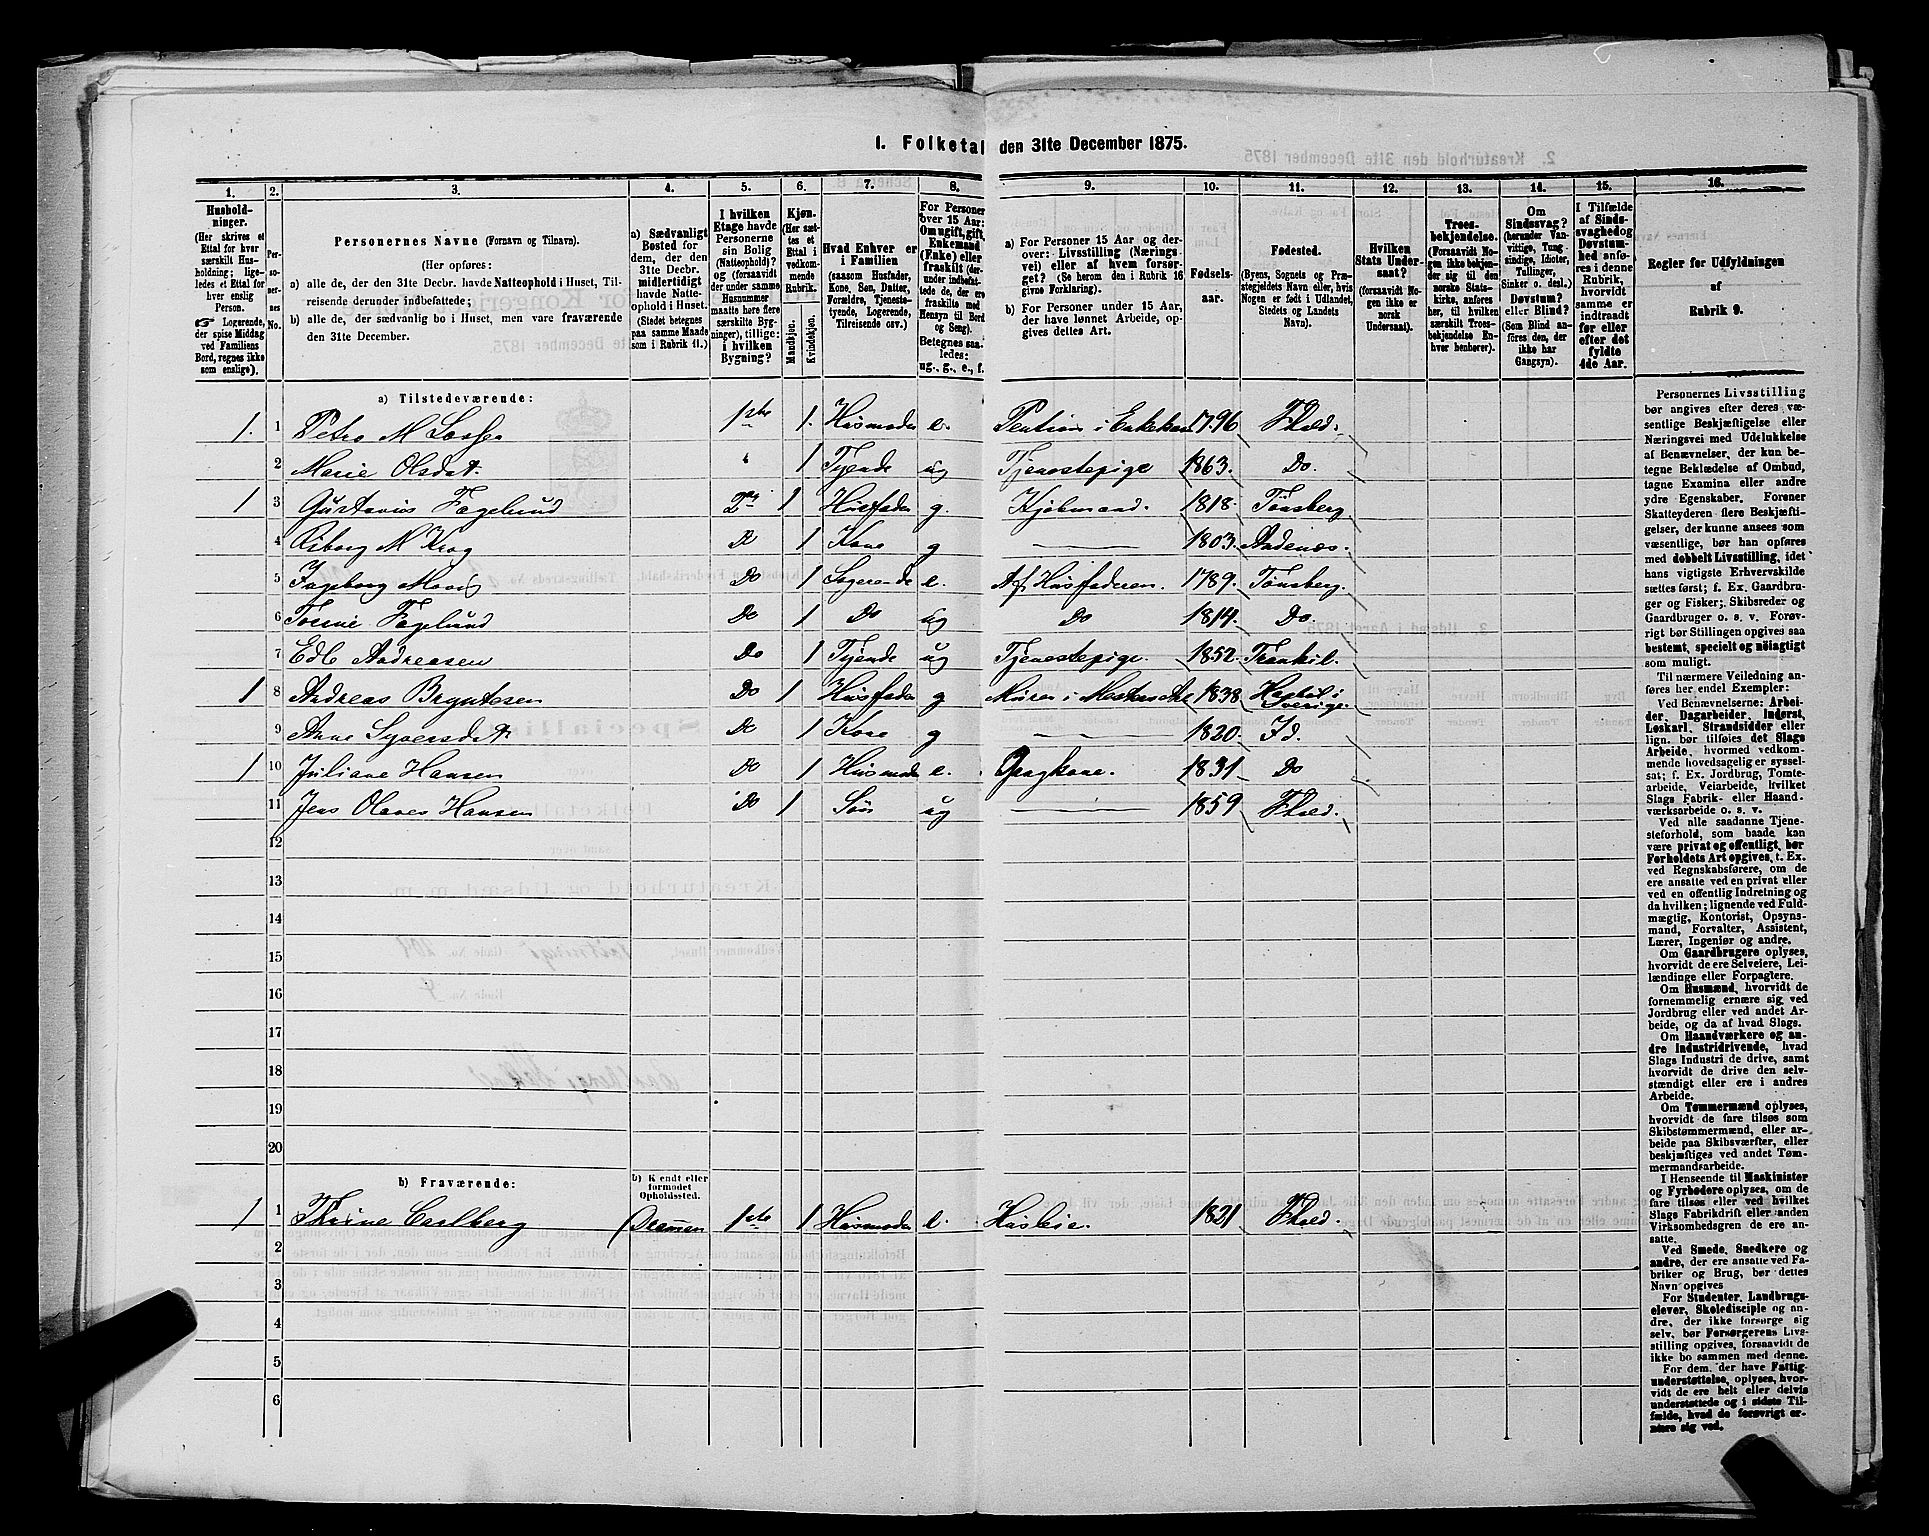 1. Folketal den 31te December 1875.
1. Husholdninger. (Her skrives et Ettal for hver særskilt Husholdning; ligeledes et Ettal for hver enslig Person. Logerende, der spise Middag ved Familiens Bord, regnes ikke som enslige).
2. Personernes No.
3. Personernes Navne (Fornavn og Tilnavn).
(Her opføres:
a) alle de, der den 31te Decbr. havde Natteophold i Huset, Tilreisende derunder indbefattede;
b) alle de, der sædvanlig bo i Huset, men vare fraværende den 31te December.
4. a) Sædvanligt Bosted for dem, der den 31te Decbr. midlertidigt havde Natteophold i Huset. (Stedet betegnes paa samme Maade som i Rubrik 11.)
5. I hvilken Etage havde Personerne sin Bolig (Natteophold)? og (forsaavidt der under samme Husnummer maatte høre flere særskilte Bygninger), tillige: i hvilken Bygning?
6. Kjøn. (Her sættes et Ettal i vedkommende Rubrik. Mandkjøn. Kvindekjøn.
7. Hvad Enhver er i Familien (saasom Husfader, Kone, Søn, Datter, Forældre, Tjenestetyende, Logerende, Tilreisende osv.)
8. For Personer over 15 Aar: Om ugift, gift, Enkemand (Enke) eller fraskilt (derunder indbefattede de, der ere fraskilte med Hensyn til Bord og Seng). Betegnes saaledes: ug., g., e., f.
9. a) For Personer 15 Aar og derover: Livsstilling (Næringsvei) eller af hvem forsørget? (Se herom den i Rubrik 16 givne Forklaring).
b) For Personer under 15 Aar, der have lønnet Arbeide, opgives dettes Art.
10. Fødselsaar.
11. Fødested. (Byens, Sognets og Præstegjeldets Navn eller, hvis Nogen er født i Udlandet, Stedets og Landets Navn).
12. Hvilken Stats Undersaat? (forsaavidt Nogen ikke er norsk Undersaat).
13. Troesbekjendelse. (Forsaavidt Nogen ikke bekjender sig til den norske Statskirke, anføres her, til hvilken særskilt Troesbekjendelse Enhver henhører).
14. Om Sindssvag? (herunder Vanvittige, Tungsindige, Idioter, Tullinger, Sinker o. desl.) Døvstum? eller Blind? (Som Blind anføres den, der ikke har Gangsyn).
15. I Tilfælde af Sindssvaghed og Døvstumhed anføres i denne Rubrik, hvorvidt samme er indtraadt før eller efter det fyldte 4de Aar.
16. Regler for Udfyldningen af Rubrik 9.
a) Tilstedeværende:
1. 1 Petro M 1ste 1. Husmoder e. Pention i Enkekas 1796 Fhald.
2 Marie Olsdat. " 1 Tyende ug Tjenestepige 1863. Do.
1 3 Gustavius Fagelund 2den 1 Husfader g. Kjøbmand. 1818. Tønsberg
4 M Krog D 1 Kone g — 1803. Andenæs.
5 Ingeborg Do 1 Logerende e. Af Husfaderen. 1789. Tønsberg.
6 Fagelund Do 1 Do ug Do 1814. Do.
7 Edle Andreasen Do 1 Tyende ug Tjenestepige. 1852. Trankil.
1 8 Andreas Bryntesen Do 1 Husfader g Murer 1838. Sverige.
9 Anne Syversdat Do 1 Kone g — 1820. Id.
1 10 Juliane Hansen Do 1 Husmoder e. 1831 Do
11 Jens Olaves Hansen Do 1 Søn ug — 1859 Fhald.
12
13
14
15
16
17
18
19
20
b) Fraværende: b) Kjendt eller formodet Opholdssted.
1 1 Carlberg 1ste 1 Husmoder e. Huseie. 1821 Fhald.
2
3
4
5
6
Personernes Livsstilling
bør angives efter deres væsentlige
Beskjæftigelse eller
Næringsvei med Udelukkelse
af Benævnelser, der kun betegne
Beklædelse af Ombud,
tagne Examina eller andre
ydre Egenskaber. Forener
Skatteyderen flere Beskjæftigelser,
der kunne ansees som
væsentlige, bør han opføres
med dobbelt Livsstilling, idet
hans vigtigste Erhvervskilde
sættes først; f. Ex. Gaardbruger
og Fisker; Skibsreder og
Gaardbruger o. s. v. Forøvrigt
bør Stillingen opgives saa
bestemt, specielt og nøiagtigt
som muligt.
Til nærmere Veiledning anføres
her endel Exempler:
Ved Benævnelserne: Arbeider,
Dagarbeider, Inderst,
Løskarl, Strandsidder eller
lign. bør tilføies det Slags
Arbeide, hvormed vedkommende
hovedsagelig er sysselsat;
f. Ex. Jordbrug, Tomtearbeide,
Veiarbeide, hvilket
Slags Fabrik- eller Haandværksarbeide
o. s. v.
Ved alle saadanne Tjenesteforhold,
som baade kan
være privat og offentligt, bør
Forholdets Art opgives, t. Ex.
ved Regnskabsførere, om de
ere ansatte ved en privat eller
ved en offentlig Indretning og
da hvilken; lignende ved Fuldmægtig,
Kontorist, Opsynsmand,
Forvalter, Assistent,
Lærer, Ingeniør og andre.
Om Gaardbrugere oplyses,
hvorvidt de ere Selveiere, Leilændinge
eller Forpagtere.
Om Husmænd, hvorvidt de
fornemmelig ernære sig ved
Jordbrug eller ved andet Arbeide,
og da af hvad Slags.
Om Haandværkere og andre
Industridrivende, hvad
Slags Industri de drive, samt
hvorvidt de drive den selvstændigt
eller ere i andres
Arbeide.
Om Tømmermænd oplyses,
hvorvidt de fare tilsøs som
Skibstømmermænd, eller arbeide
paa Skibsværfter, eller
beskjæftiges ved andet Tømmermandsarbeide.
I Henseende til Maskinister
og Fyrbødere oplyses, om de
fare tilsøs eller ved hvilket
Fabrikdrift eller anden
Virksomhedsgren de ere ansatte.
Ved Smede, Snedkere og
andre, der ere ansatte ved Fabriker
og Brug, bør dettes
Navn opgives
For Studenter, Landbrugselever,
Skoledisciple og andre,
der ikke forsørge sig
selv, bør Forsørgerens Livsstilling
opgives, forsaavidt de
ikke bo sammen med denne.
For dem, der have Fattigunderstøttelse,
oplyses, hvorvidt
de ere helt eller delvis
understøttede og i sidste Tilfælde,
hvad de forøvrigt ernære
sig ved.